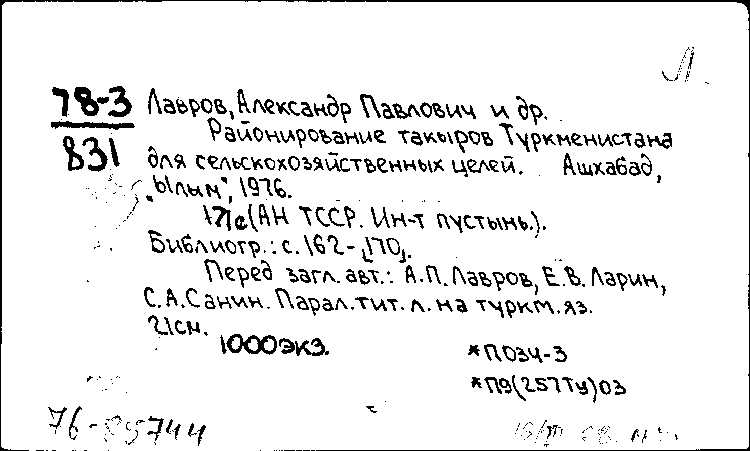 Л.
78-3
831
Лавров, Александр Павлович и др.
Районирование такыров Туркменистана
для сельскохозяйственных целей. Ашхабад,
"Ылым", 1976.
171с (АН ТССР. Ин-т пустынь.).
Библиогр.: с. 162-[170].
Перед загл. авт.: А.П. Лавров, Е.В. Ларин,
С.А. Санин. Парал. тит. л. на туркм. яз.
21см.
1000 экз.
*П034-3
*П9(257Ту)03
76-85744